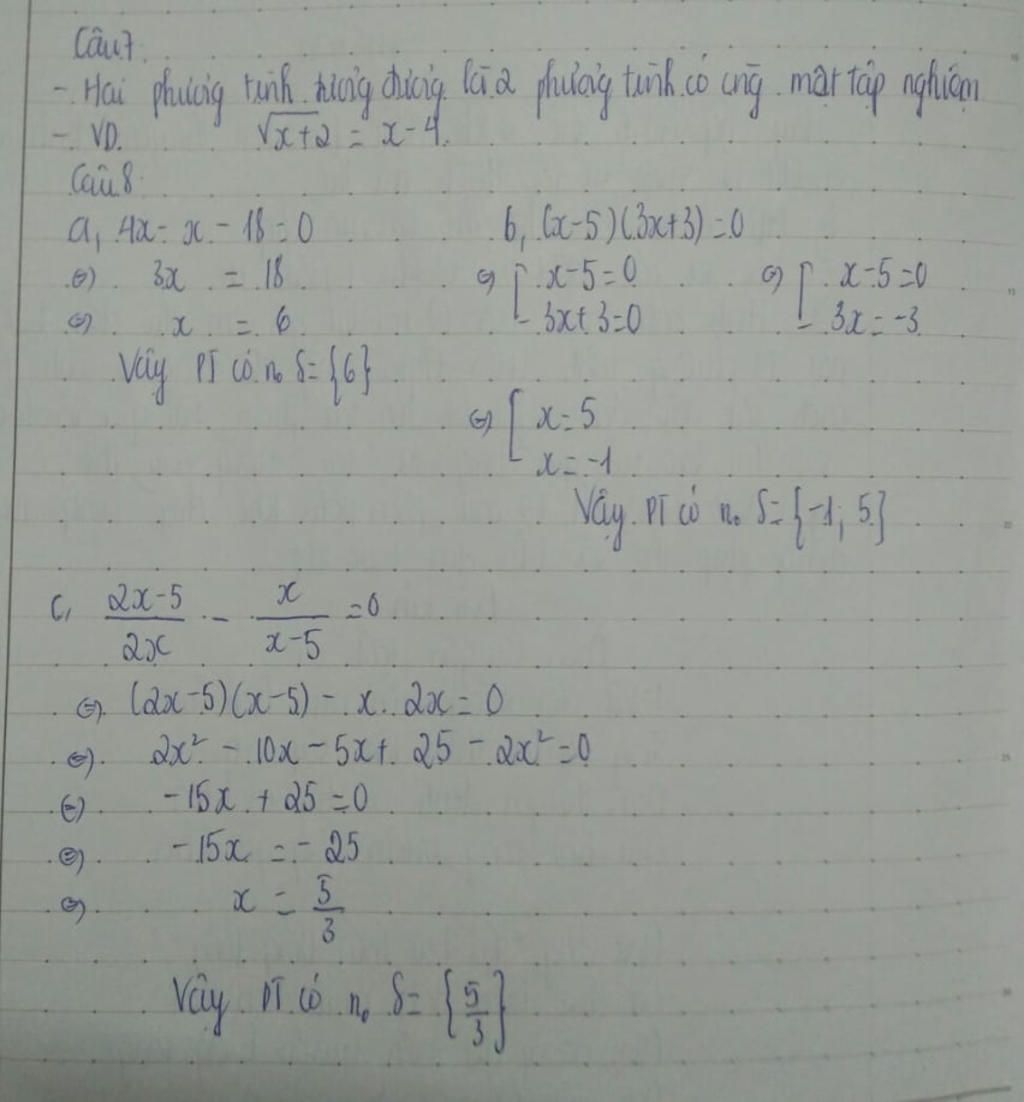 Câu 7.
- Hai phương trình tương đương là 2 phương trình có cùng một tập nghiệm
- VD. √x+2 = x-4.
Câu 8.
a, 4x - x - 18 = 0
⇔ 3x = 18
⇔ x = 6
Vậy PT có no S = {6}
b, (x-5)(3x+3) = 0
⇔ [ x-5=0 ⇔ [ x-5=0
3x+3=0 3x=-3
⇔ [ x=5
x=-1
Vậy PT có no S = {-1; 5}
c, (2x-5)/(2x) - x/(x-5) = 0
⇔ (2x-5)(x-5) - x. 2x = 0
⇔ 2x² - 10x - 5x + 25 - 2x² = 0
⇔ -15x + 25 = 0
⇔ -15x = -25
⇔ x = 5/3
Vậy PT có no S = {5/3}